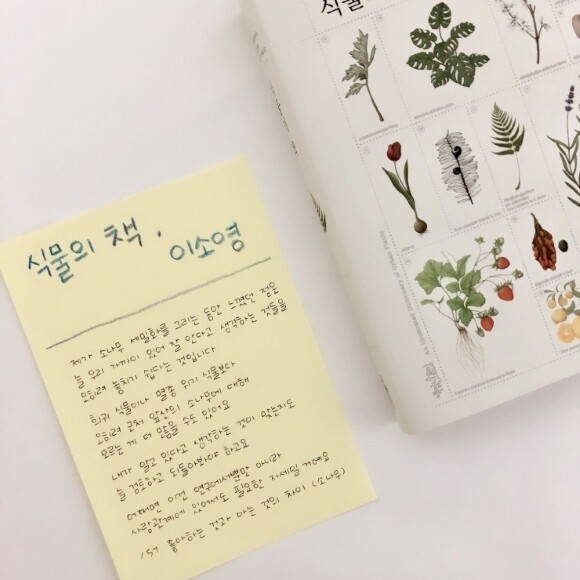 식물
식물의 책. 이소영
제가 소나무 세밀화를 그리는 동안 느꼈던 점은
늘 우리 가까이 있어 잘 안다고 생각하는 것들을
오히려 놓치기 쉽다는 것입니다
희귀 식물이나 멸종 위기 식물보다
오히려 근처 앞산의 소나무에 대해
모르는 게 더 많을 수도 있어요
내가 알고 있다고 생각하는 것이 맞는지도
늘 검토하고 되돌아보아야 하고요
어쩌면 이건 연구에서뿐만 아니라
사람관계에 있어서도 필요한 자세일 거예요
157 좋아하는 것과 아는 것의 차이 (소나무)